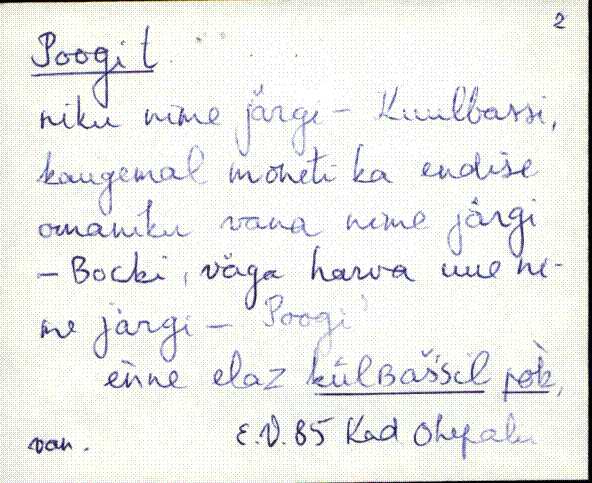 2
Poogi t
niku nime järgi – Kuulbassi,
kaugemal mõneti ka endise
omaniku vana nime järgi
– Bocki, väga harva uue ni-
me järgi – Poogi
enne elaz külBašsil pòk,
van. E.V. 85 Kad Ohepalu